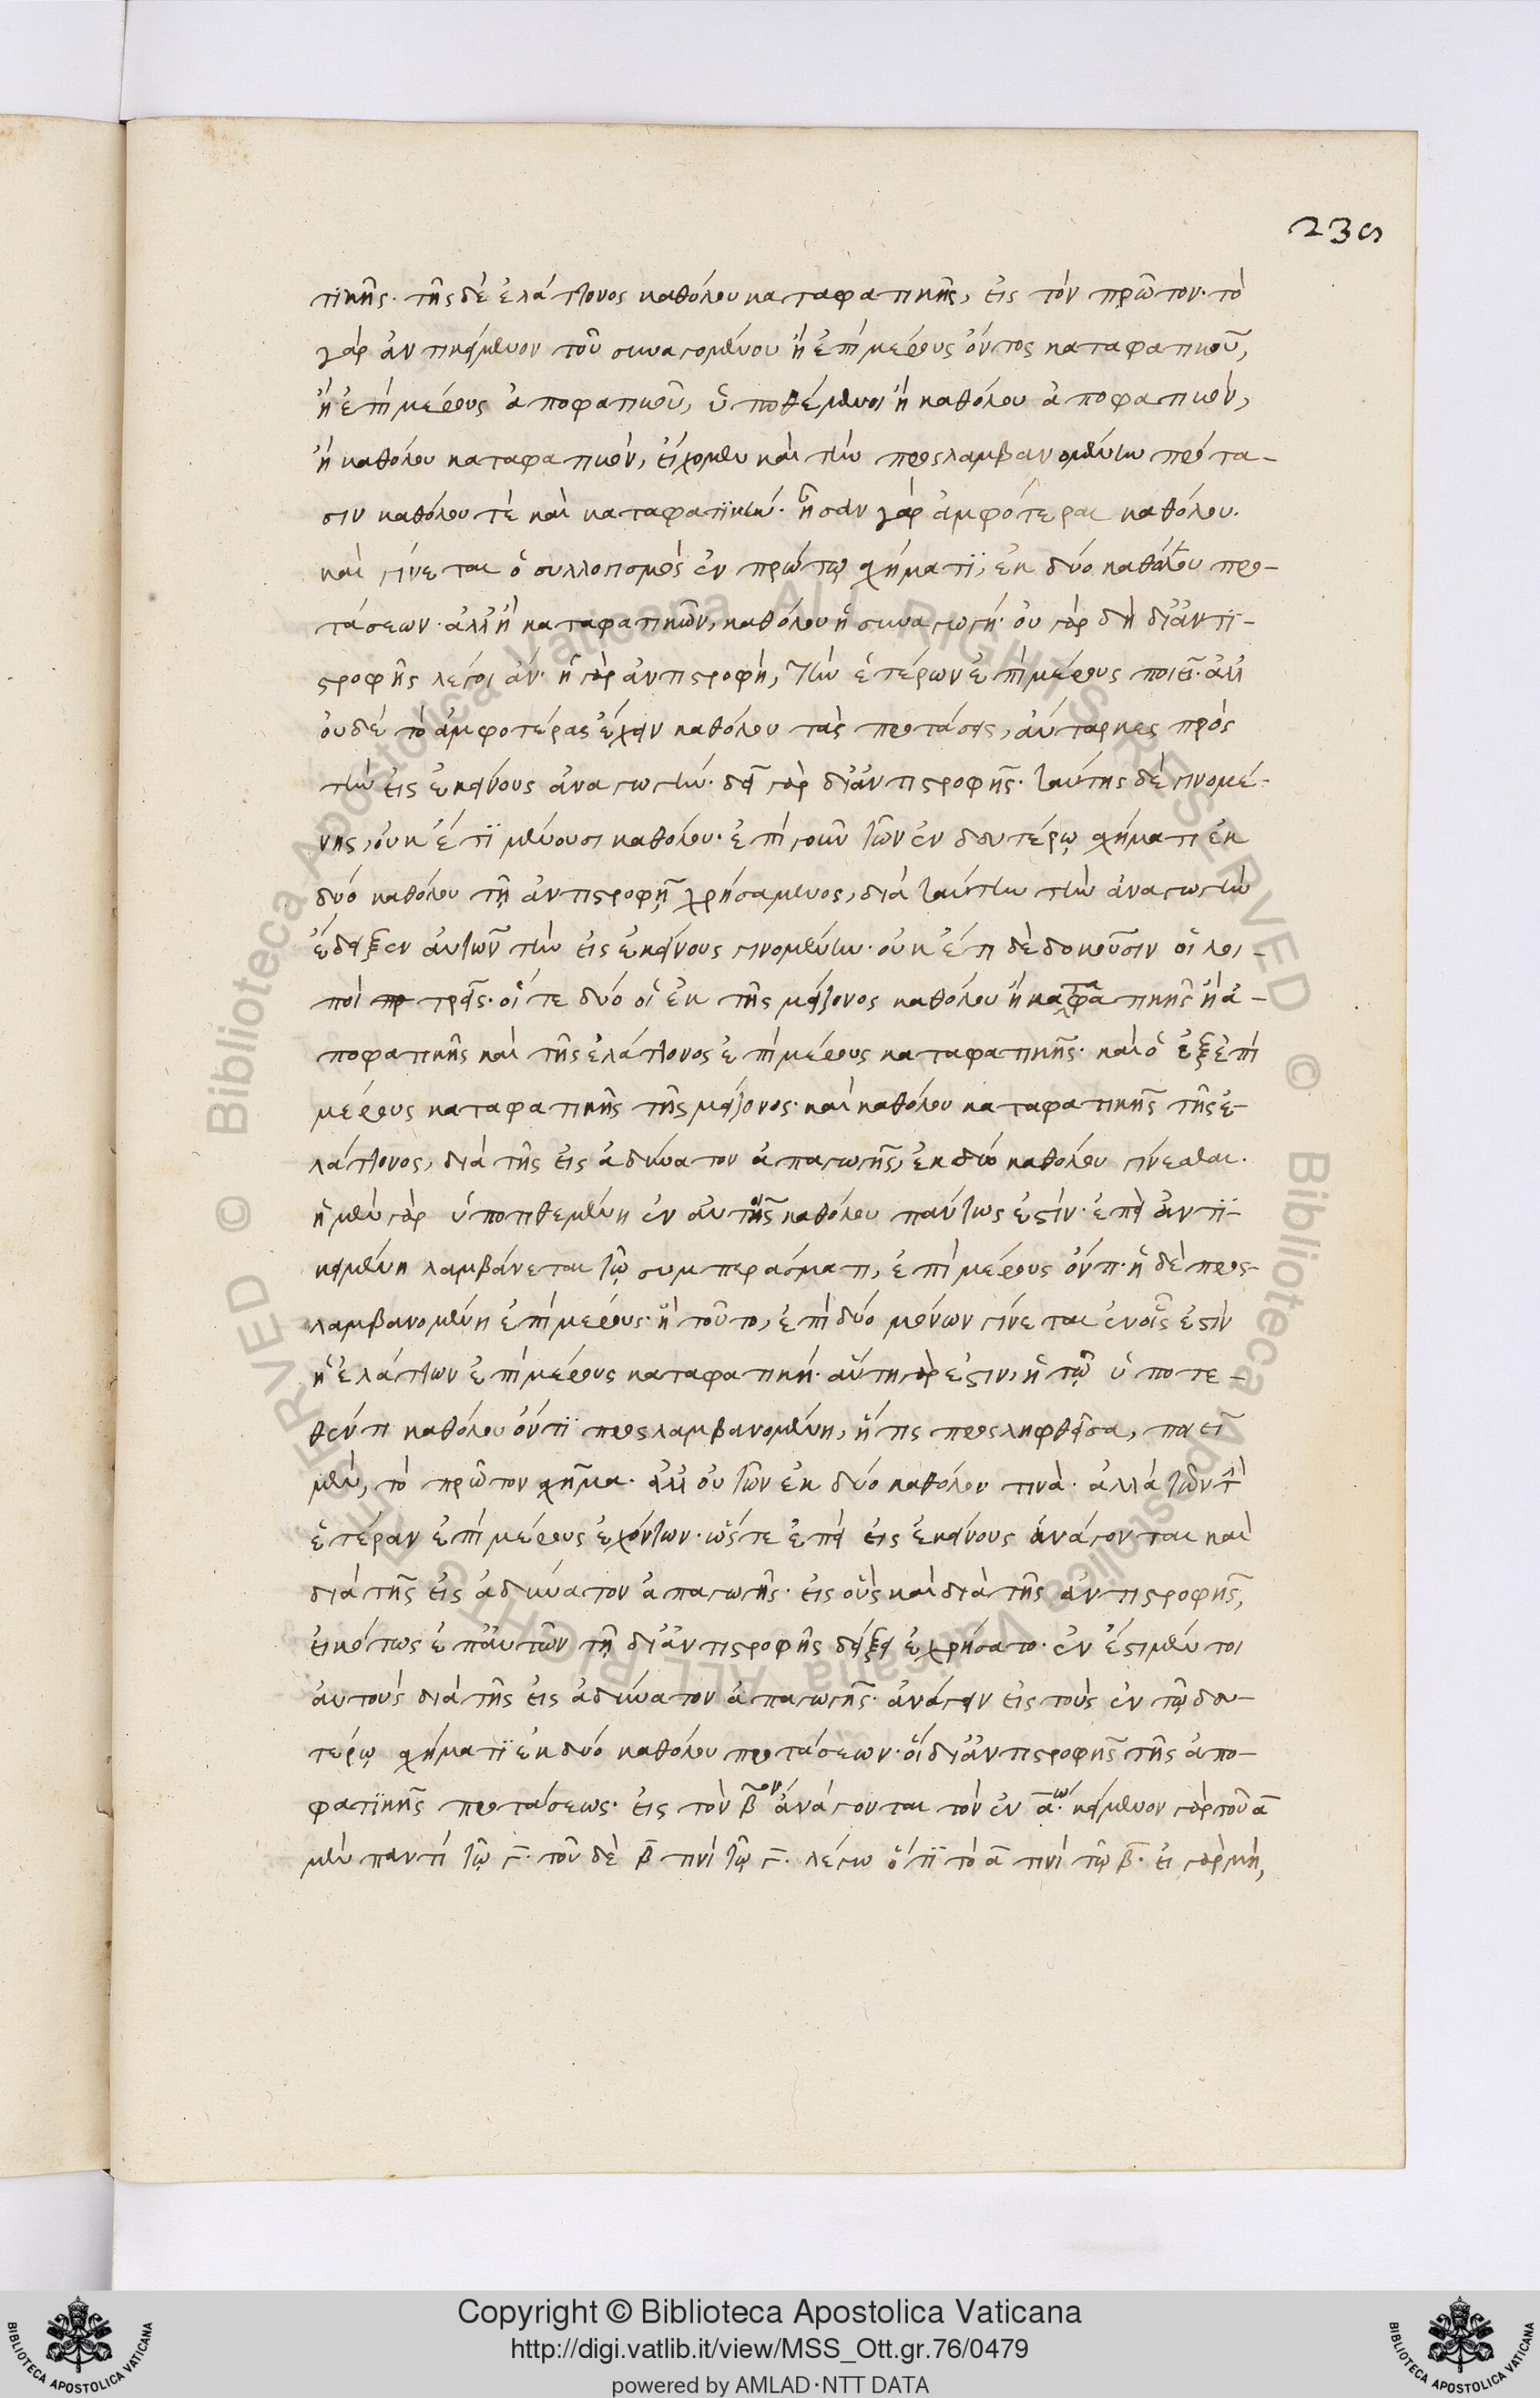 239
τικῆς· τῆς δὲ ἐλάττονος καθόλου καταφατικῆς, εἰς τὸν πρῶτον· τὸ
γὰρ ἀντικείμενον τοῦ συναγομένου ἢ ἐπὶ μέρους ὄντος καταφατικοῦ,
ἢ ἐπὶ μέρους ἀποφατικοῦ, ὑποθέμενοι ἢ καθόλου ἀποφατικὸν,
ἢ καθόλου καταφατικὸν, εἴχομεν καὶ τὴν προσλαμβανομένην πρότα-
σιν καθόλου τὲ καὶ καταφατικήν· ἦσαν γὰρ ἀμφότεραι καθόλου.
καὶ γίνεται ὁ συλλογισμὸς ἐν πρώτῳ σχήματι, ἐκ δύο καθόλου προ-
τάσεων· ἀλλ' ἡ καταφατικῶν, καθόλου ἡ συναγωγή· οὐ γὰρ δὴ δι' ἀντι-
στροφῆς λέγοι ἄν· ἡ γὰρ ἀντιστροφὴ, τὴν ἑτέρων ἐπὶ μέρους ποιεῖ· ἀλλ'
οὐδὲ τὸ ἀμφοτέρας ἔχειν καθόλου τὰς προτάσεις, αὔταρκες πρὸς
τὴν εἰς ἐκείνους ἀναγωγήν· δεῖ γὰρ δι' ἀντιστροφῆς· ταύτης δὲ γινομέ-
νης, οὐκ έτι μένουσι καθόλου· ἐπὶ γοῦν τῶν ἐν δευτέρῳ σχήματι ἐκ
δύο καθόλου τῇ ἀντιστροφῇ χρησάμενος, διὰ ταύτην τὴν ἀναγωγὴν
ἔδειξεν αὐτῶν τὴν εἰς ἐκείνους γινομένην· οὐκ έτι δὲ δοκοῦσιν οἱ λοι-
ποὶ τρεῖς· οἵ τε δύο οἱ ἐκ τῆς μείζονος καθόλου ἢ καταφατικῆς ἢ ἀ-
ποφατικῆς καὶ τῆς ἐλάττονος ἐπὶ μέρους καταφατικῆς· καὶ ὁ ἐξ ἐπὶ
μέρους καταφατικῆς τῆς μείζονος· καὶ καθόλου καταφατικῆς τῆς ἐ-
λάττονος, διὰ τῆς εἰς ἀδύνατον ἀπαγωγῆς, ἐκ δύο καθόλου γίνεσθαι.
ἡ μὲν γὰρ ὑποτιθεμένη ἐν αὐτοῖς καθόλου πάντως ἐστίν· ἐπεὶ ἀντι-
κειμένη λαμβάνεται τῷ συμπεράσματι, ἐπὶ μέρους ὄντι· ἡ δὲ προσ-
λαμβανομένη ἐπὶ μέρους· ἢ τοῦτο, ἐπὶ δύο μόνων γίνεται ἐν οἷς ἐστὶν
ἡ ἐλάττων ἐπὶ μέρους καταφατική· αὕτη γὰρ ἐστιν, ἡ τῷ ὑποτε-
θέντι καθόλου ὄντι προσλαμβανομένη, ἥτις προσληφθεῖσα, ποιεῖ
μὲν, τὸ πρῶτον σχῆμα· ἀλλ' οὐ τῶν ἐκ δύο καθόλου τινὰ· ἀλλὰ τῶν τὴν
ἑτέραν ἐπὶ μέρους ἐχόντων· ὥστε ἐπεὶ εἰς ἐκείνους ἀνάγονται καὶ
διὰ τῆς εἰς ἀδύνατον ἀπαγωγῆς· εἰς οὓς καὶ διὰ τῆς ἀντιστροφῆς,
εἰκότως ἐπ' αὐτῶν τῇ δι' ἀντιστροφῆς δείξει ἐχρήσατο· ἐν ἔστι μέν τοι
αὐτοὺς διὰ τῆς εἰς ἀδύνατον ἀπαγωγῆς· ἀνάγειν εἰς τοὺς ἐν τῷ δευ-
τέρῳ σχήματι ἐκ δύο καθόλου προτάσεων· οἳ δι' ἀντιστροφῆς τῆς ἀπο-
φατικῆς προτάσεως· εἰς τὸν β̄ον ἀνάγονται τὸν ἐν ᾱω· κείμενον γὰρ τοῦ ᾱ
μὲν παντὶ τῷ γ̄· τοῦ δὲ β̄ τινὶ τῷ γ̄· λέγω ὅτι τὸ ᾱ τινὶ τῷ β̄· εἰ γὰρ μὴ,
Copyright © Biblioteca Apostolica Vaticana
http://digi.vatlib.it/view/MSS_Ott.gr.76/0479
powered by AMLAD·NTT DATA